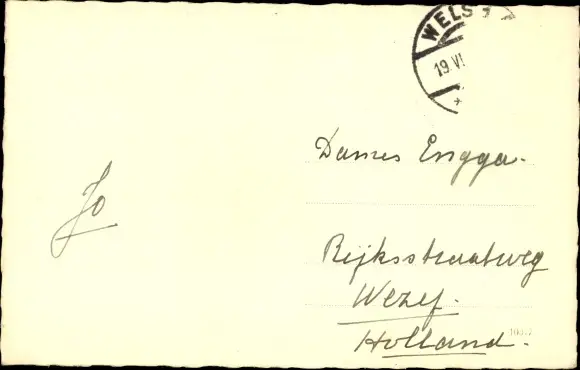 WELS 1
19.VI
Dames Engga.
Jo
Rijksstraatweg
Wezep.
Holland.